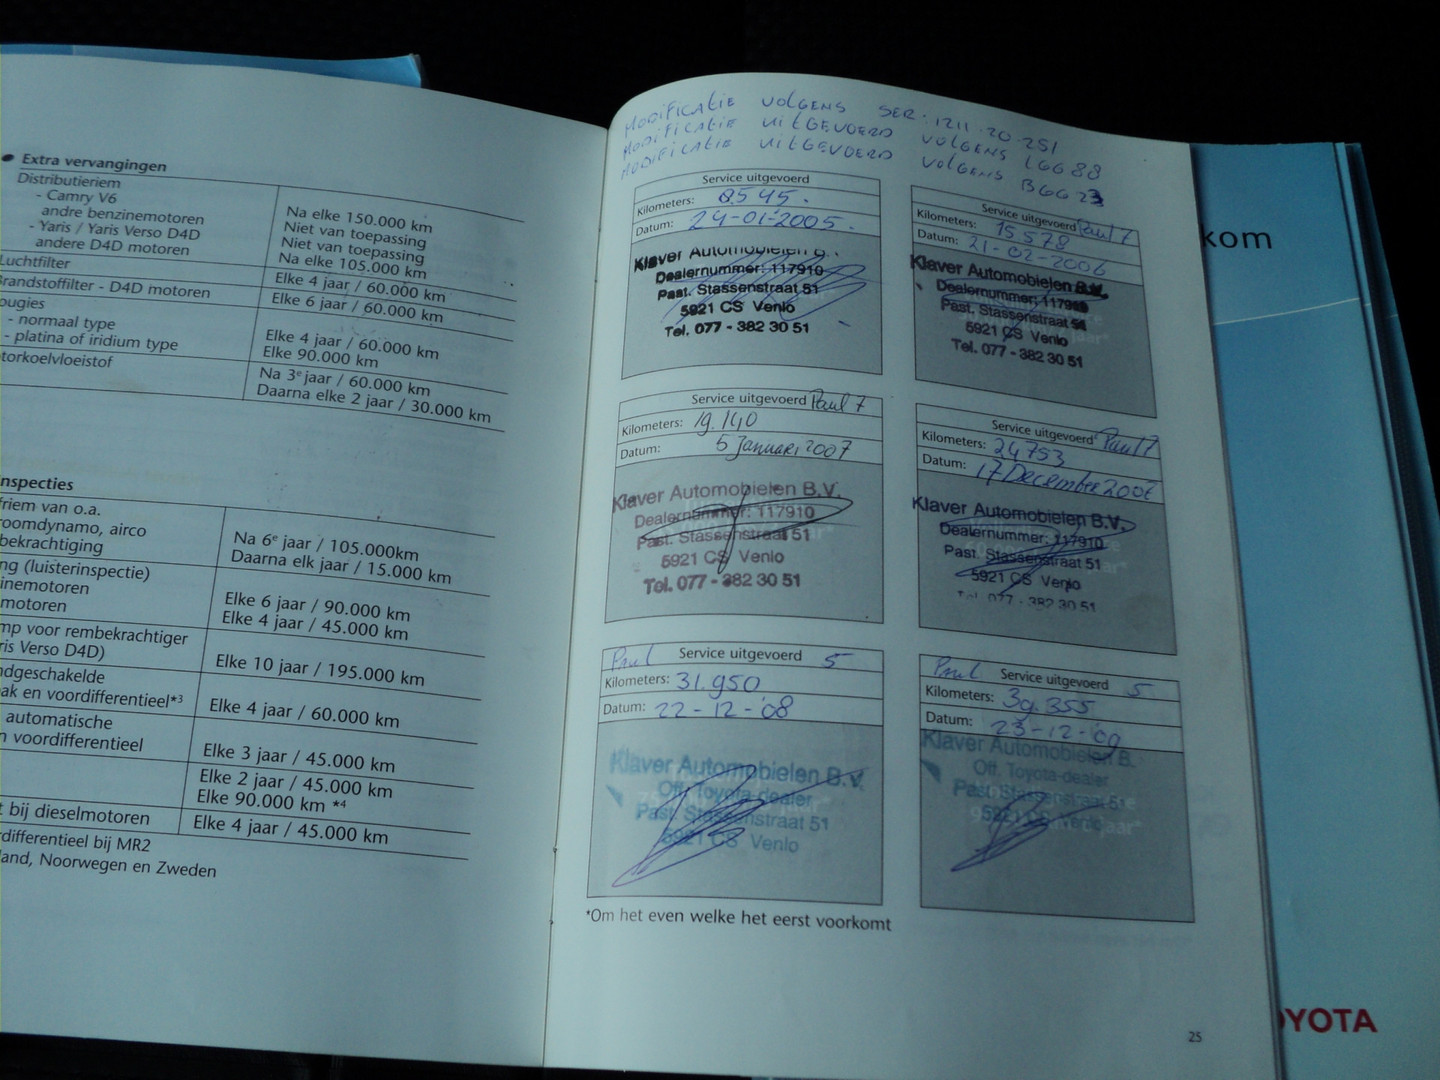 Extra vervangingen
Distributieriem
- Camry V6
andre benzinemotoren
- Yaris / Yaris Verso D4D
andere D4D motoren
Na elke 150.000 km
Niet van toepassing
Niet van toepassing
Na elke 105.000 km
Luchtfilter
Elke 4 jaar / 60.000 km
Brandstoffilter - D4D motoren
Elke 6 jaar / 60.000 km
ougies
- normaal type
- platina of iridium type
Elke 4 jaar / 60.000 km
Elke 90.000 km
torkoelvloeistof
Na 3e jaar / 60.000 km
Daarna elke 2 jaar / 30.000 km
nspecties
riem van o.a.
roomdynamo, airco
bekrachtiging
Na 6e jaar / 105.000km
Daarna elk jaar / 15.000 km
ng (luisterinspectie)
inemotoren
motoren
Elke 6 jaar / 90.000 km
Elke 4 jaar / 45.000 km
mp voor rembekrachtiger
ris Verso D4D)
Elke 10 jaar / 195.000 km
ndgeschakelde
ak en voordifferentieel*3
Elke 4 jaar / 60.000 km
automatische
n voordifferentieel
Elke 3 jaar / 45.000 km
Elke 2 jaar / 45.000 km
Elke 90.000 km *4
t bij dieselmotoren
Elke 4 jaar / 45.000 km
rdifferentieel bij MR2
land, Noorwegen en Zweden
MODIFICATIE VOLGENS SER: 1211.20.251
MODIFICATIE UITGEVOERD VOLGENS LGG 88
MODIFICATIE UITGEVOERD VOLGENS BGG 23
Service uitgevoerd
Kilometers: 8545.
Datum: 24-01-2005.
Klaver Automobielen B.V.
Dealernummer: 117910
Past. Stassenstraat 51
5921 CS Venlo
Tel. 077 - 382 30 51
Service uitgevoerd Paul 7
Kilometers: 15578
Datum: 21-02-2006
Klaver Automobielen B.V.
Dealernummer: 117910
Past. Stassenstraat 51
5921 CS Venlo
Tel. 077 - 382 30 51
Service uitgevoerd Paul 7
Kilometers: 19.140
Datum: 5 Januari 2007
Klaver Automobielen B.V.
Dealernummer: 117910
Past. Stassenstraat 51
5921 CS Venlo
Tel. 077 - 382 30 51
Service uitgevoerd Paul 7
Kilometers: 24753
Datum: 17 Decembre 2006
Klaver Automobielen B.V.
Dealernummer: 117910
Past. Stassenstraat 51
5921 CS Venlo
Tel. 077 - 382 30 51
Paul Service uitgevoerd 5
Kilometers: 31.950
Datum: 22-12-'08
Klaver Automobielen B.V.
Off. Toyota-dealer
Past. Stassenstraat 51
5921 CS Venlo
Paul Service uitgevoerd 5
Kilometers: 39.355
Datum: 23-12-'09
Klaver Automobielen B.
Off. Toyota-dealer
Past. Stassenstraat 51
5921 CS Venlo
*Om het even welke het eerst voorkomt
25
kom
TOYOTA